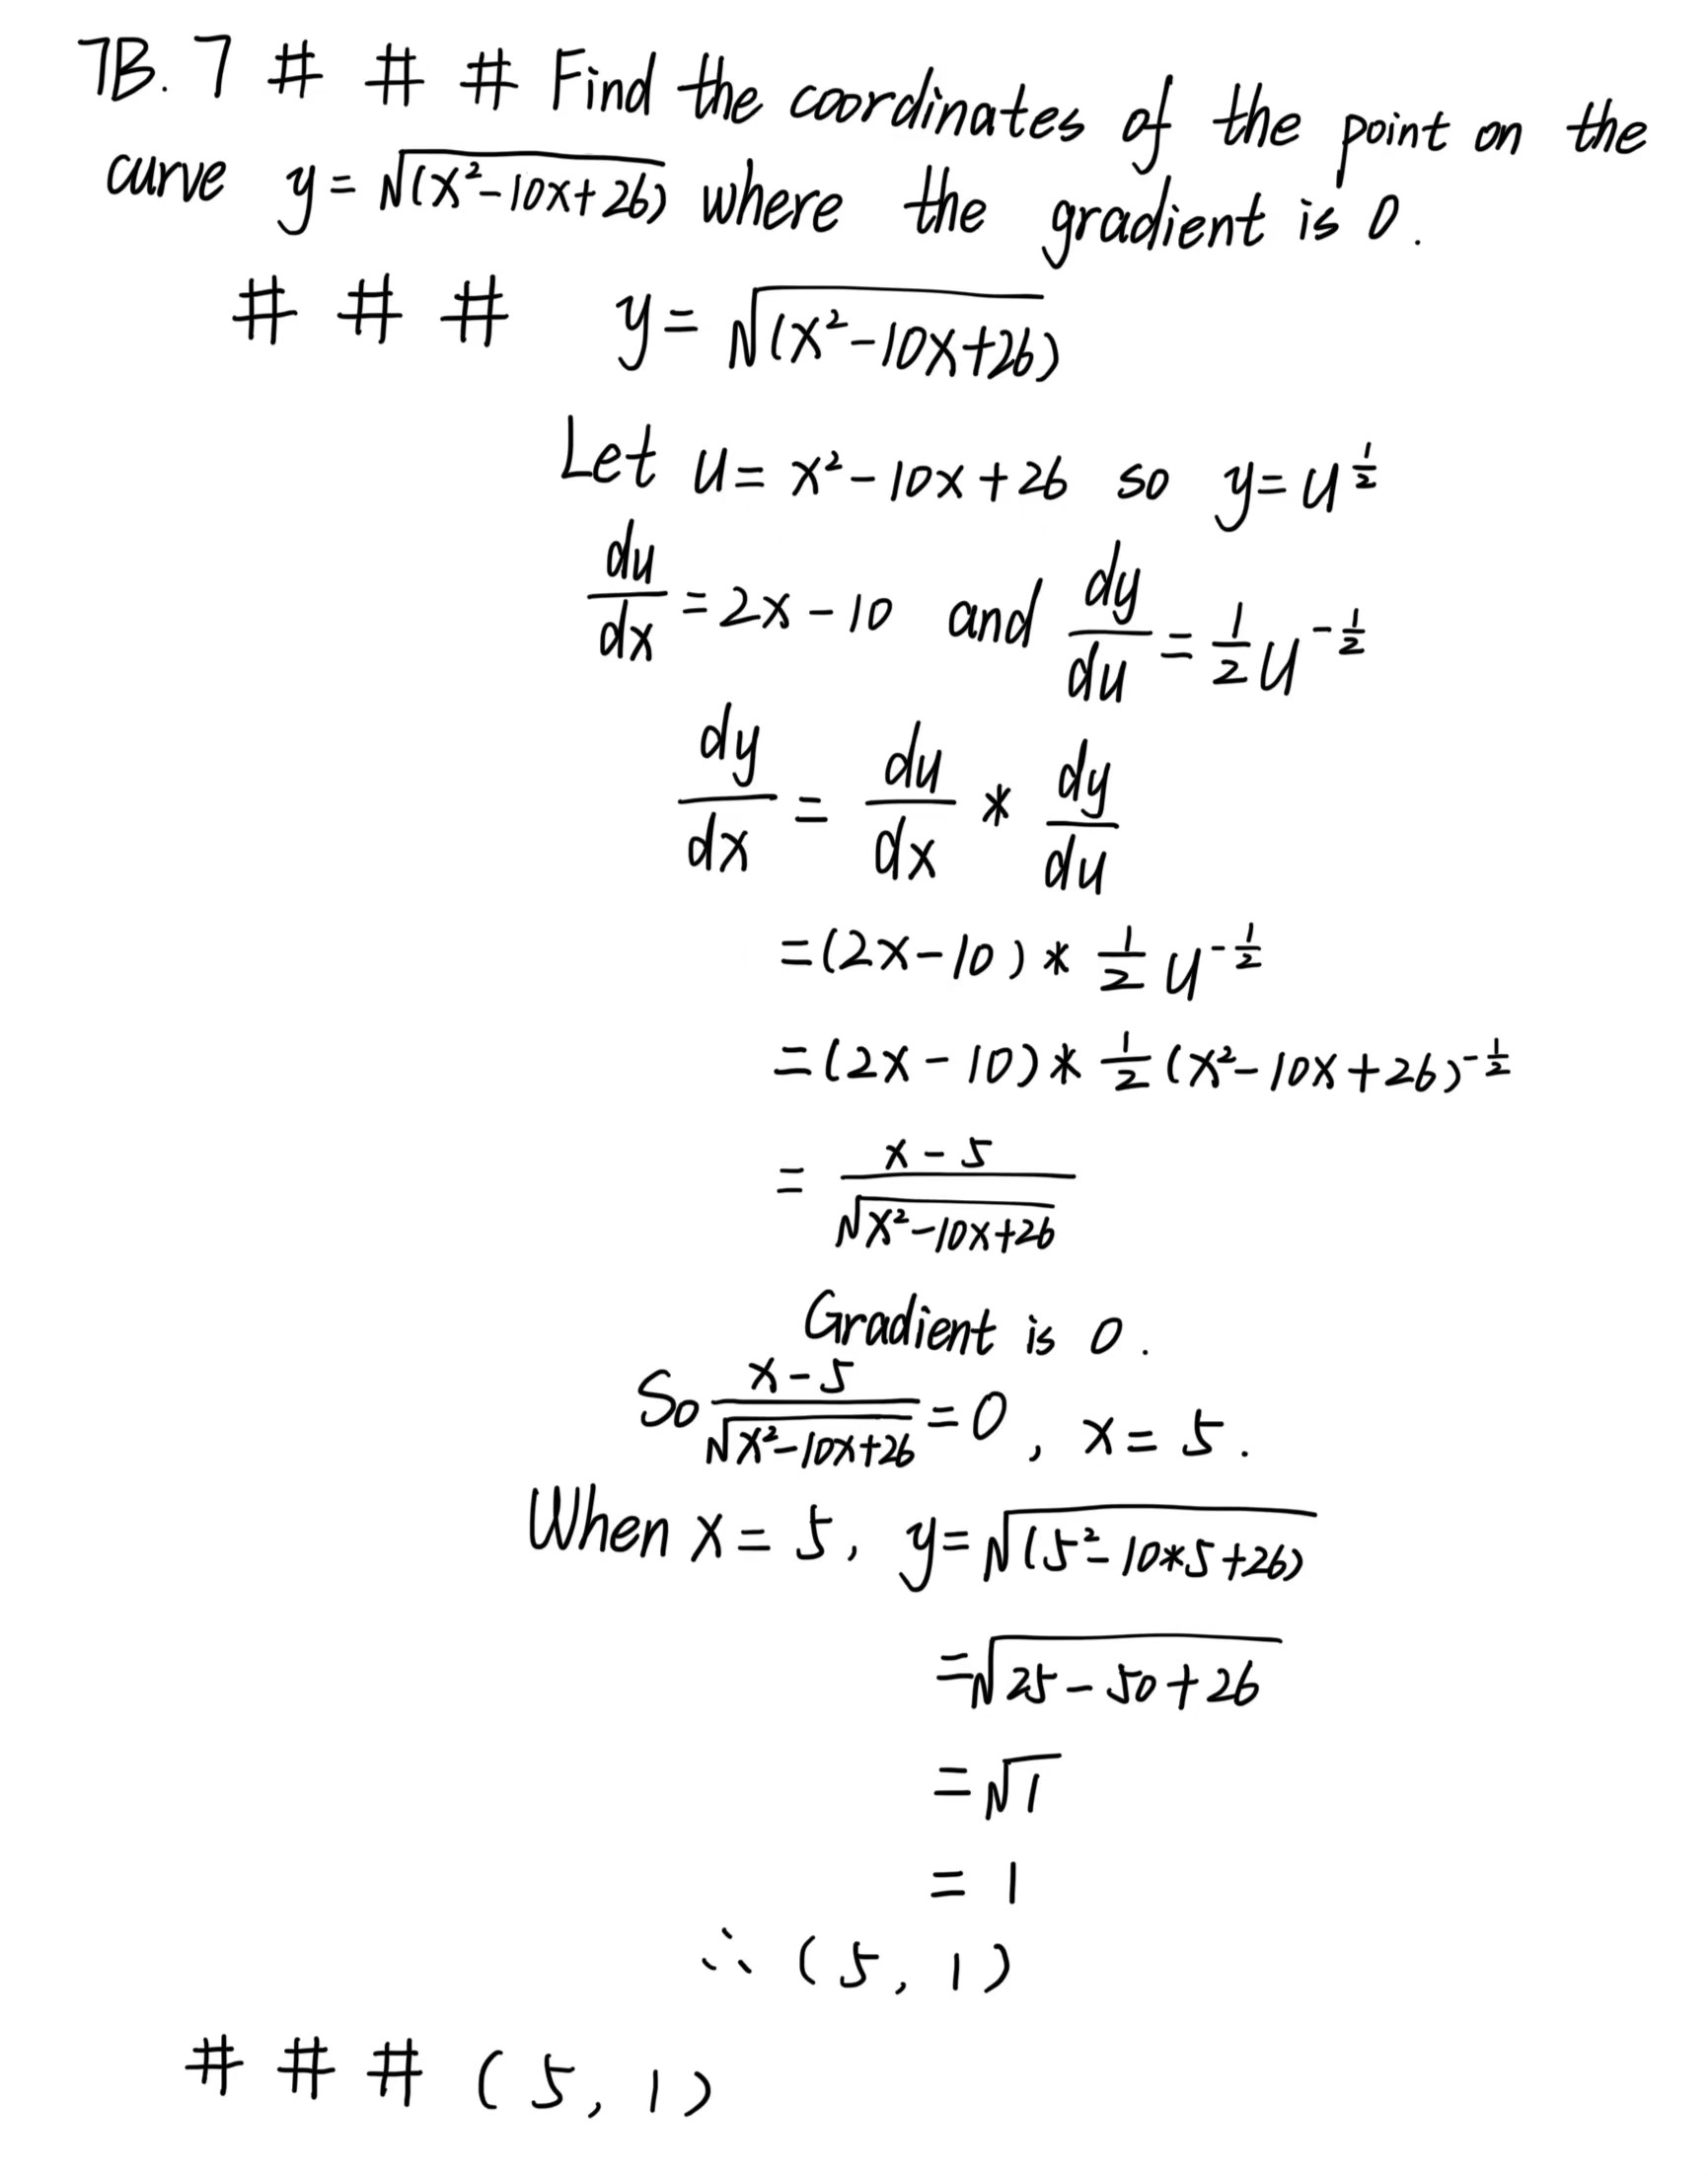 7B.7 # # # Find the coordinates of the point on the
curve y=√(x²-10x+26) where the gradient is 0.
# # # y=√(x²-10x+26)
Let u=x²-10x+26 so y=u^{1/2}
du/dx=2x-10 and dy/du=1/2 u^{-1/2}
dy/dx = du/dx * dy/du
=(2x-10)*1/2 u^{-1/2}
=(2x-10)*1/2 (x²-10x+26)^{-1/2}
= (x-5)/√(x²-10x+26)
Gradient is 0.
So (x-5)/√(x²-10x+26)=0, x=5.
When x=5, y=√(5²-10*5+26)
=√(25-50+26)
=√1
=1
∴ (5,1)
# # # (5,1)